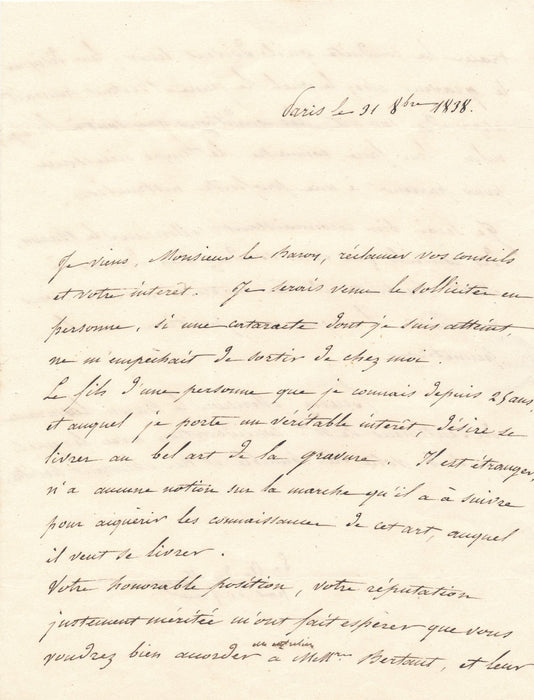 Paris le 31 8bre 1838.
Je viens, Monsieur le Baron, réclamer vos conseils
et votre intérêt. Je serais venu le solliciter en
personne, si une cataracte dont je suis atteint,
ne m'empêchait de sortir de chez moi.
Le fils d'une personne que je connais depuis 25 ans,
et auquel je porte un véritable intérêt, désire se
livrer au bel art de la gravure. Il est étranger,
n'a aucune notion sur la marche qu'il a à suivre
pour acquérir les connaissances de cet art, auquel
il veut se livrer.
Votre honorable position, votre réputation
justement méritée m'ont fait espérer que vous
voudrez bien accorder à Bertaut, et leur